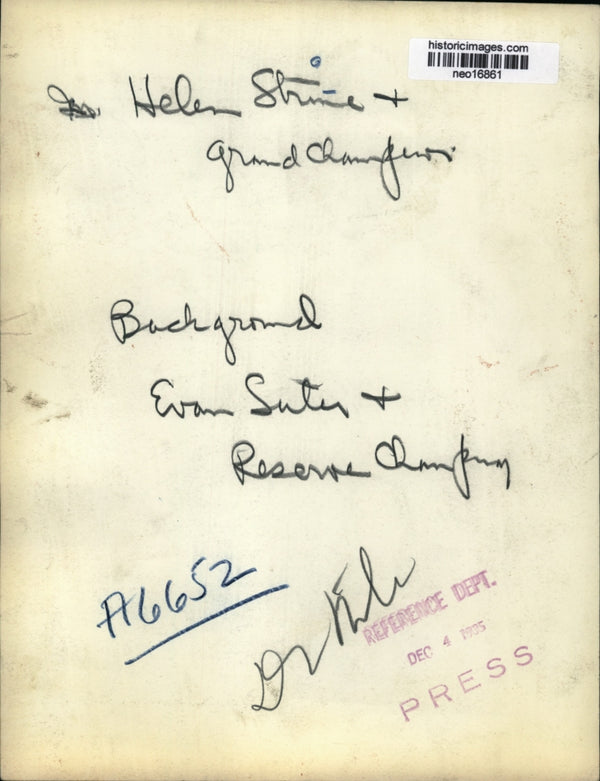 historicimages.com
neo16861
Helen Strine +
Grand Champion
Background
Evan Suter +
Reserve Champion
A6652
REFERENCE DEPT.
DEC 4
PRESS